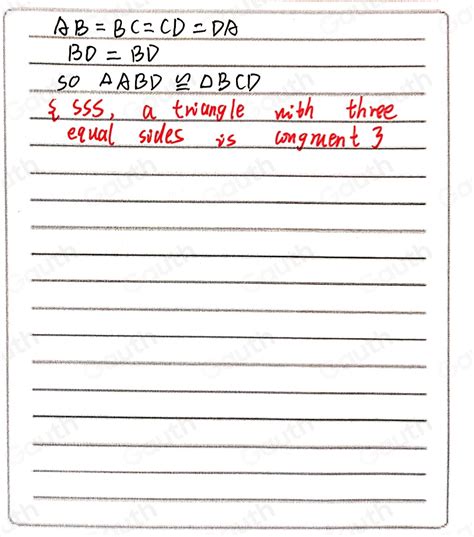 AB = BC = CD = DA
BD = BD
so △ABD ≌ △BCD
{ SSS, a triangle with three
equal sides is congruent }